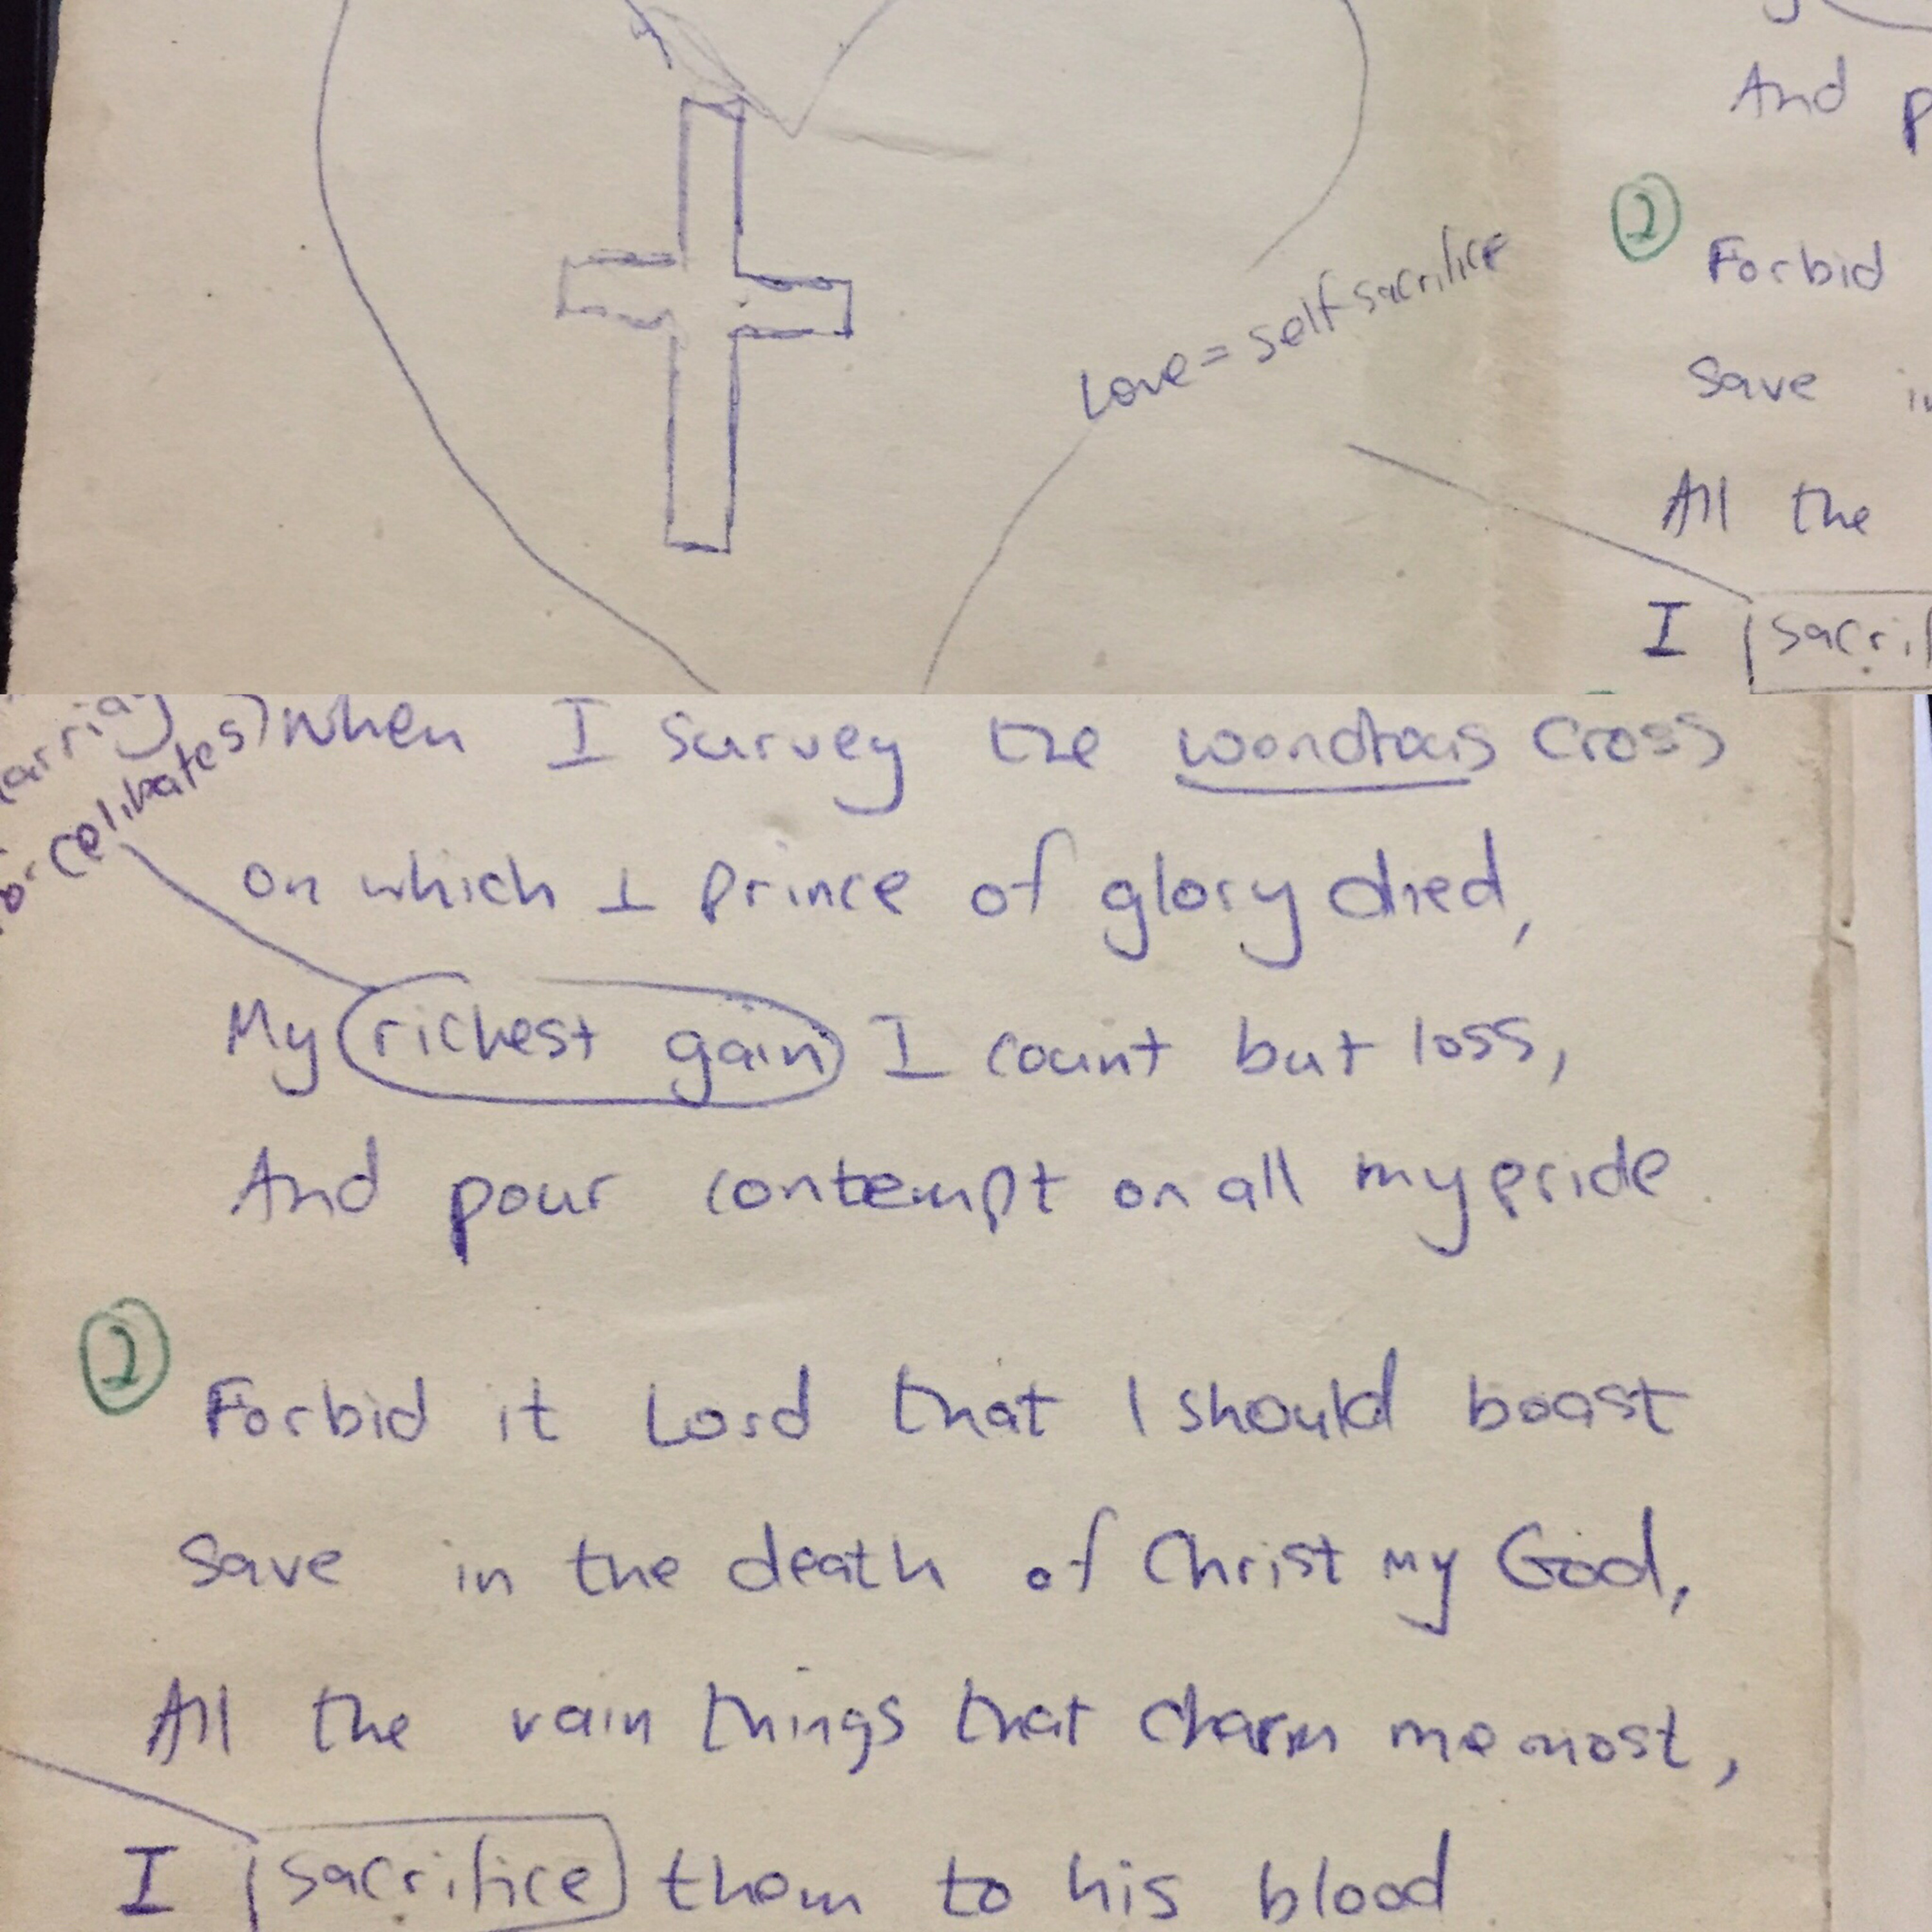 And
2
Forbid
Love = self sacrifice
save
All the
I sacrif
celibates) when I survey the wondrous cross
on which ⊥ prince of glory died,
My richest gain I count but loss,
And pour contempt on all my pride.
2
Forbid it Lord that I should boast
save in the death of Christ my God,
All the vain things that charm me most,
I sacrifice them to his blood